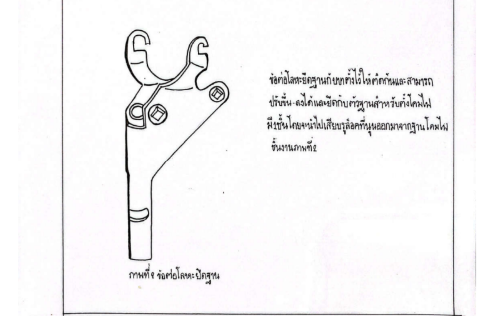 ข้อต่อโลหะยึดฐานกับขาตั้งไว้ให้ติดกันและสามารถ
ปรับขึ้น-ลงได้และยึดกับตัวฐานสำหรับตั้งโคมไฟ
อีกชั้นโดยจะนำไปเสียบรูล็อคที่นูนออกมาจากฐานโคมไฟ
ชิ้นงานภาพที่2
ภาพที่ ข้อต่อโลหะยึดฐาน